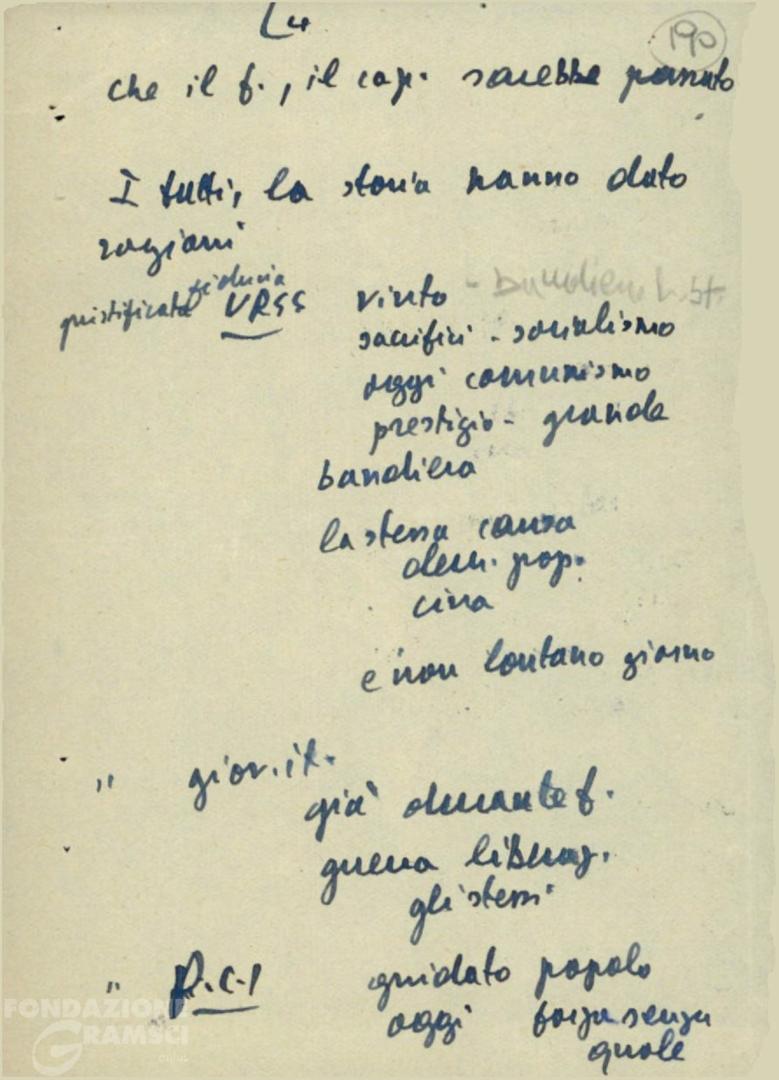 4
190
che il f., il cap. sarebbe passato
I fatti, la storia hanno dato
ragioni
giustificata fiducia URSS vinto - bandiera
sacrifici - socialismo
oggi comunismo
prestigio - grande
bandiera
la stessa causa
dem. pop.
cina
e non lontano giorno
" giov. it.
già durante f.
guerra liberaz.
gli stessi
" P.C.I guidato popolo
oggi forza senza
quale
FONDAZIONE
GRAMSCI